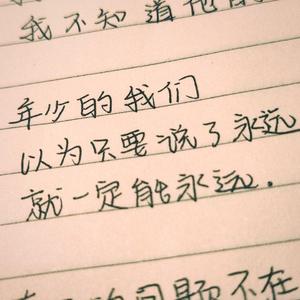 我不知道他
年少的我们
以为只要说了永远
就一定能永远.
的问题不在